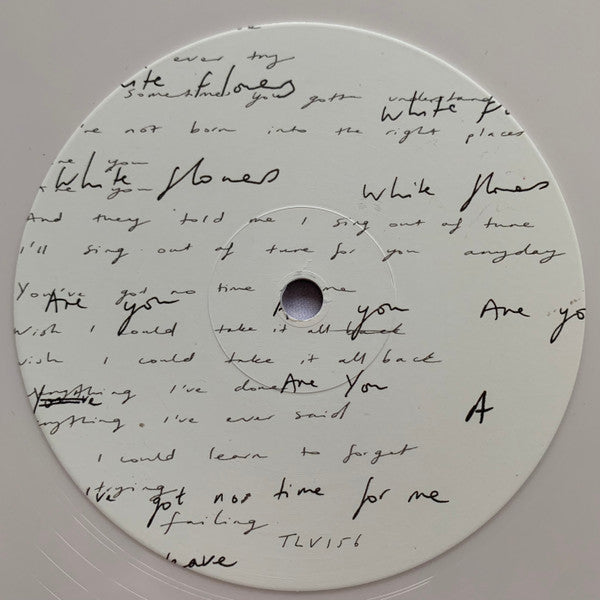 ever try
White flowers
sometimes you gotta understand
White
're not born into the right places
are you
White flowers White flowers
are you
And they told me I sing out of tune
I'll sing out of tune for you anyday
You've got no time me
Are you A you Are yo
wish I could take it all back
wish I could take it all back
anything I've done Are You
You've
A
anything I've ever said
I could learn to forget
trying
I've got not time for me
failing
TLV156
have